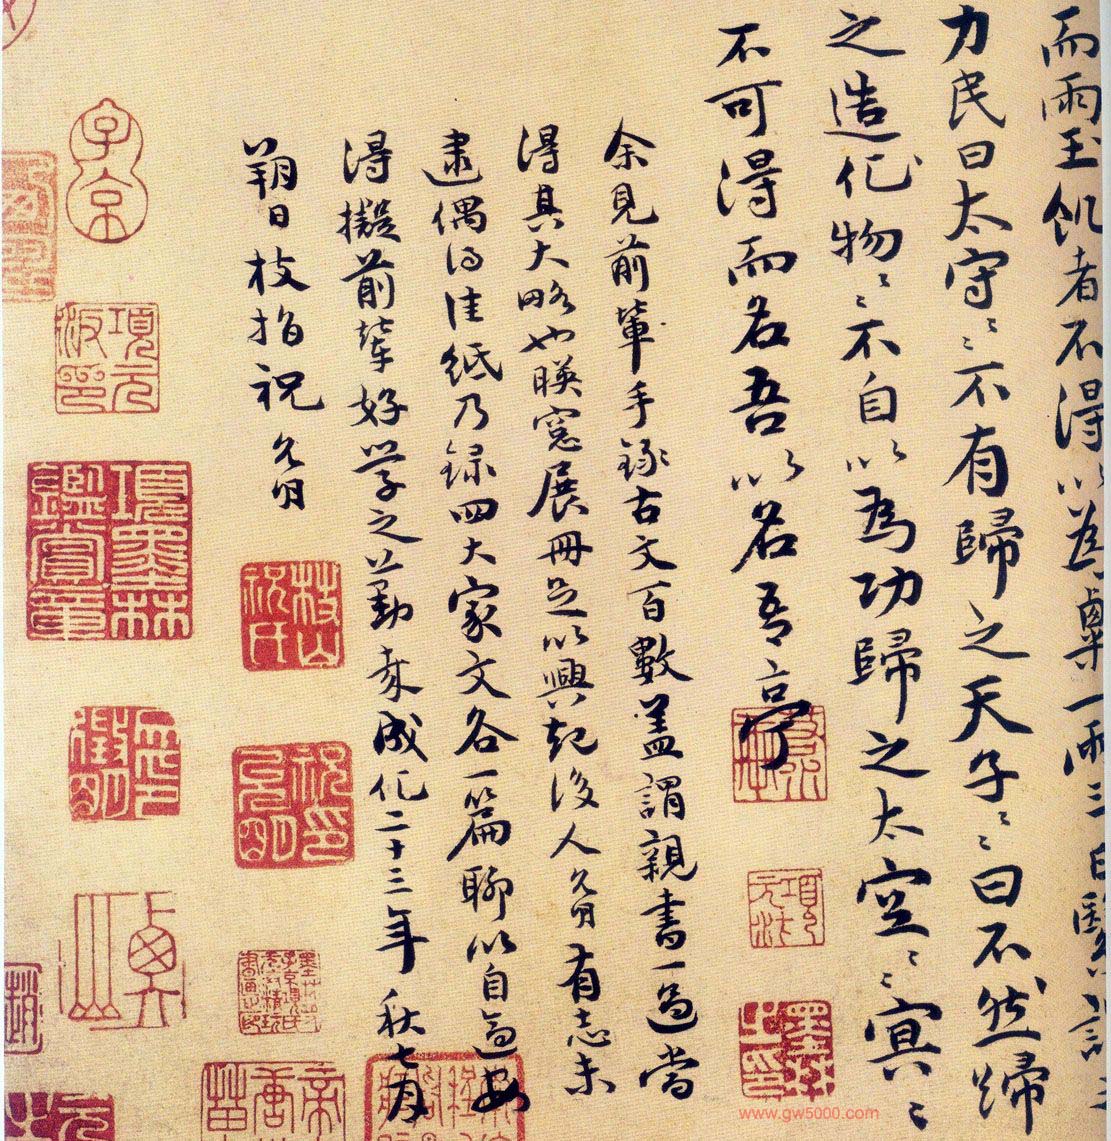 而雨玉飢者不得以為粟一雨三日繄誰之
力民曰太守〻〻不有歸之天子〻〻曰不然歸
之造化物〻〻不自以為功歸之太空〻〻冥〻
不可得而名吾以名吾亭
余見前輩手錄古文百數蓋謂親書一過當
得其大略也暎窓展冊足以興起後人允明有志未
逮偶得佳紙乃録四大家文各一篇聊以自適安
得擬前輩好学之勤哉成化二十三年秋七月
朔日枝指祝允明
枝山祝氏
祝印允明
子京
項元汴印
項墨林鑑賞章
墨林之印
www.gw5000.com